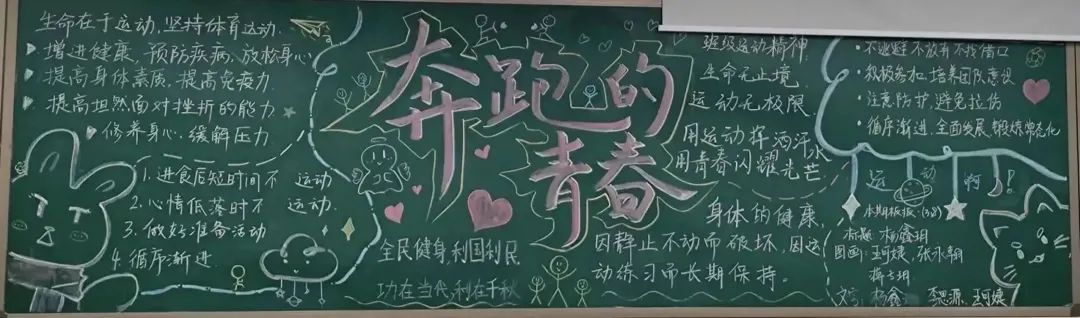 生命在于运动,坚持体育运动.
增进健康,预防疾病,放松身心
提高身体素质,提高免疫力.
提高坦然面对挫折的能力.
修养身心,缓解压力
1.进食后短时间不 运动
2.心情低落时不 运动.
3.做好准备活动
4.循序渐进.
奔跑的
青春
全民健身,利国利民
功在当代,利在千秋
班级运动精神
生命无止境.
运动无极限.
用运动挥洒汗水
用青春闪耀光芒
身体的健康,
因静止不动而破坏,因运
动练习而长期保持。
不逃避 不放弃 不找借口
积极参加,培养团队意识
注意防护,避免拉伤
循序渐进,全面发展,锻炼常态化
运 动 啊!
本期板报:(38)
标题:杨鑫玥
图画:王珂婕,张永翱
文字:杨鑫 李思源,王珂婕